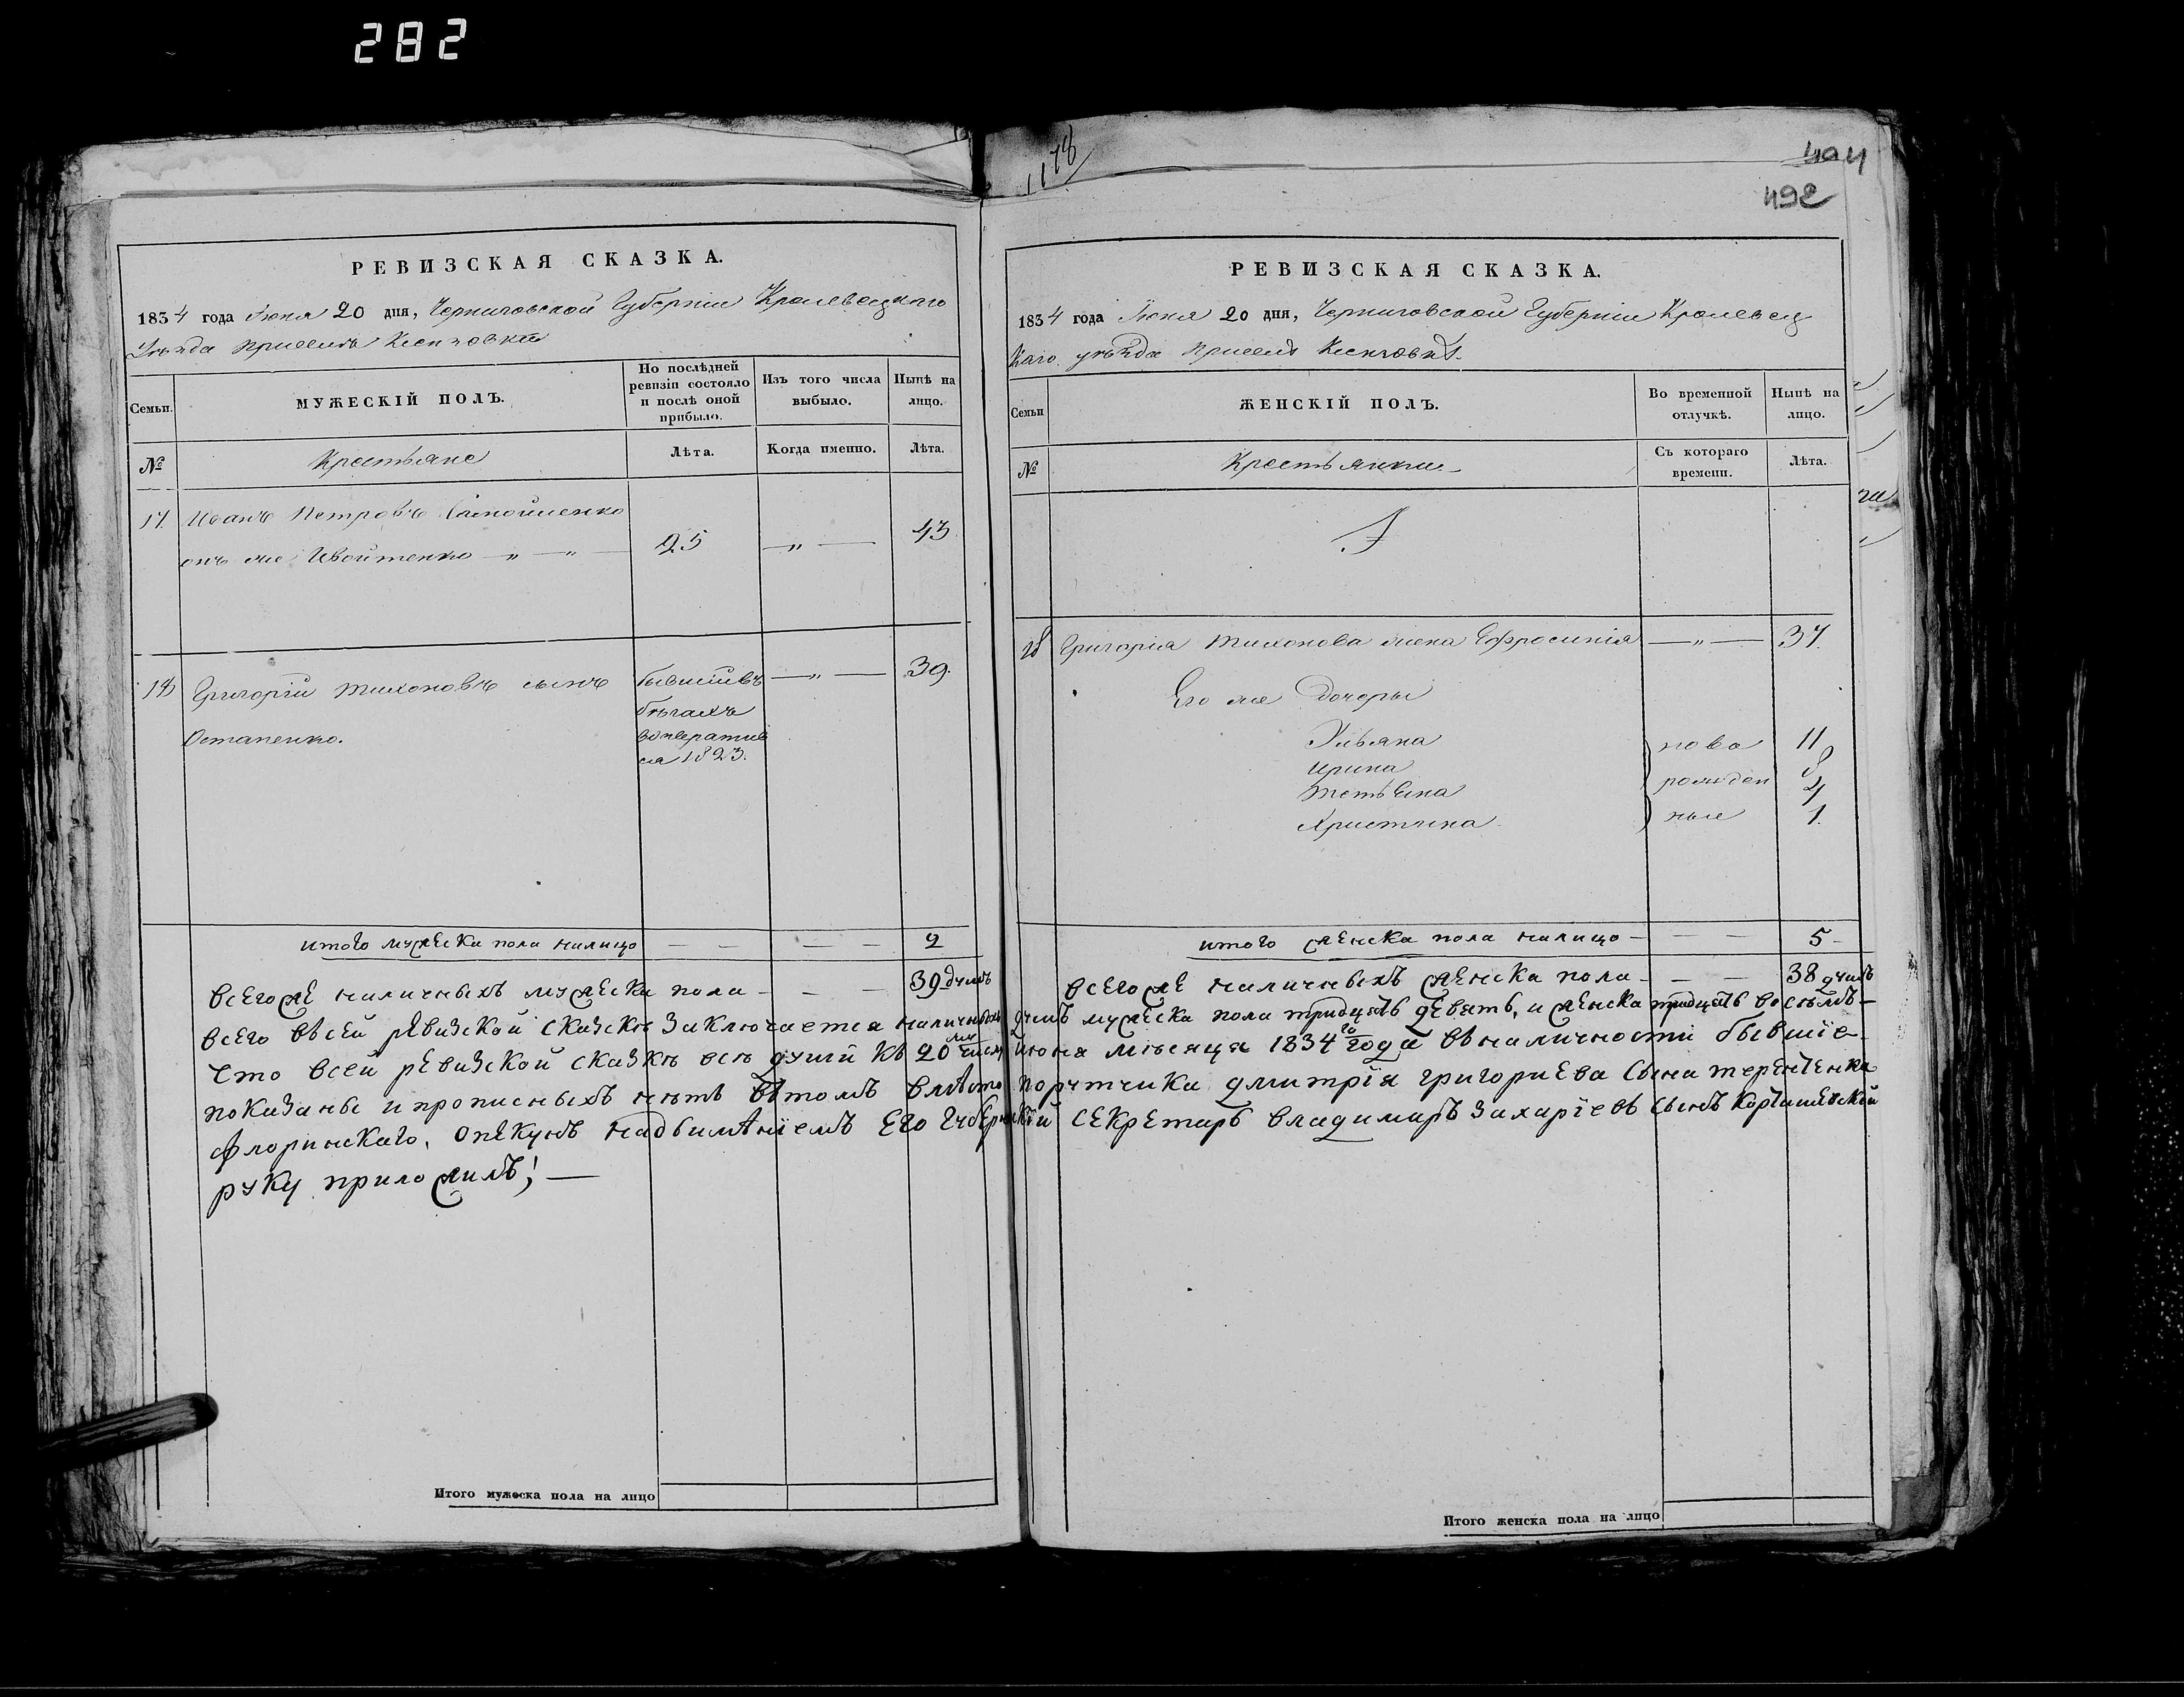 282
1178
494
492
РЕВИЗСКАЯ СКАЗКА.
1834 года Июня 20 дня, Черниговской Губернии Кролевецкого
Уѣзда приселъ
Семьи.
МУЖЕСКІЙ ПОЛЪ.
По послѣдней ревизіи состояло и послѣ оной прибыло.
Изъ того числа выбыло.
Нынѣ на лицо.
№
Крестьяне
Лѣта.
Когда именно.
Лѣта.
17. Иванъ Петровъ Самойленко
онъ же Ивойтенко — „ — „ — 25 — „ — 43.
18 Григорій Тихоновъ сынъ бывшійвъ — „ — 39.
бѣгахъ
Остапенко. возвратив
ся 1823.
итого мужеска пола налицо — — — — 2
Всегоже наличныхъ мужеска пола — — — 39 душъ
РЕВИЗСКАЯ СКАЗКА.
1834 года Июня 20 дня, Черниговской Губерніи Кролевец
каго уѣзда приселъ
Семьи
ЖЕНСКІЙ ПОЛЪ.
Во временной отлучкѣ.
Нынѣ на лицо.
№
Крестьянки
Съ котораго времени.
Лѣта.
18 Григорія Тихонова жена Ефросинія — „ — 37.
Его же дочеры
Ульяна ново 11
Ирина рожден 8
Тетьяна 4
Христина ные 1.
итого женска пола налицо — — — 5 —
Всегоже наличныхъ женска пола — — — 38 душъ
Всего въсей ревизской сказкѣ заключается наличныхъ душъ мужеска пола тридцать девять, и женска тридцать восѣмъ —
что всей ревизской сказкѣ всѣ души къ 20му числу июня мѣсяца 1834го года въналичности бывшіе
показаны и прописныхъ нѣтъ вътомъ вмѣсто порутчика Дмитрія Григориева сына Терентенка
Флоринскаго, опекунъ надъимѣніемъ его Губернскій секретарь Владимиръ Захаріевъ сынъ
руку приложилъ! —
Итого мужеска пола на лицо
Итого женска пола на лицо